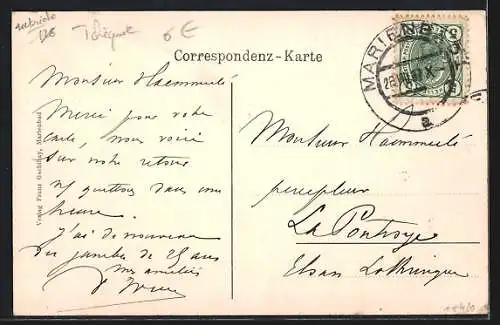 Tchéque
6 €
Correspondenz-Karte
MARIENBAD
5
Monsieur Haemmerlé
Merci pour votre
carte, nous voici
sur notre retour
ny quittons dans une
heure.
J'ai de nouveau
des jambes de 25 ans
mes amitiés
Verlag Franz Marienbad
Monsieur Haemmerlé
percepteur
La Poutroye
Elsass Lothringen